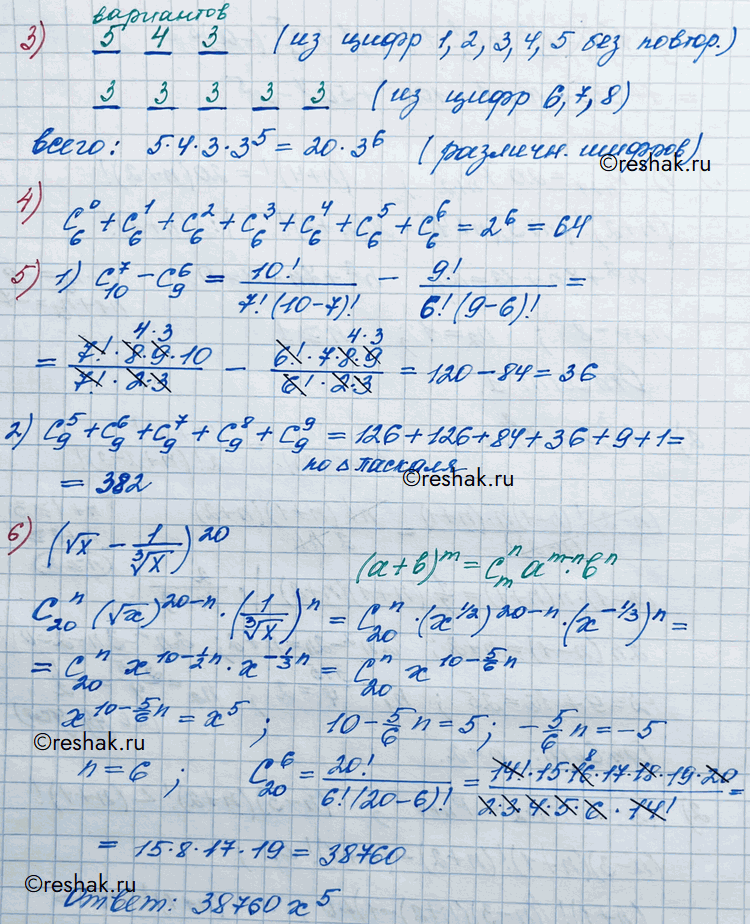 вариантов
3) 5 4 3 (из цифр 1, 2, 3, 4, 5 без повтор.)
3 3 3 3 3 (из цифр 6, 7, 8)
всего: 5·4·3·3^5 = 20·3^6 (различн. шифров)
©reshak.ru
4) C_6^0 + C_6^1 + C_6^2 + C_6^3 + C_6^4 + C_6^5 + C_6^6 = 2^6 = 64
5) 1) C_10^7 − C_9^6 = 10!/(7!(10−7)!) − 9!/(6!(9−6)!) =
= (7!·8·9·10)/(7!·2·3) − (6!·7·8·9)/(6!·2·3) = 120 − 84 = 36
4·3 4·3
2) C_9^5 + C_9^6 + C_9^7 + C_9^8 + C_9^9 = 126 + 126 + 84 + 36 + 9 + 1 =
по △ Паскаля
= 382
©reshak.ru
6) (√x − 1/∛x)^20
(a+b)^m = C_m^n a^(m−n)·b^n
C_20^n (√x)^(20−n)·(1/∛x)^n = C_20^n·(x^(1/2))^(20−n)·(x^(−1/3))^n =
= C_20^n x^(10−½n)·x^(−⅓n) = C_20^n x^(10−5/6n)
x^(10−5/6n) = x^5; 10−5/6n = 5; −5/6n = −5
©reshak.ru
n = 6; C_20^6 = 20!/(6!(20−6)!) = (14!·15·16·17·18·19·20)/(2·3·4·5·6·14!) =
8
= 15·8·17·19 = 38760
©reshak.ru
Ответ: 38760x^5